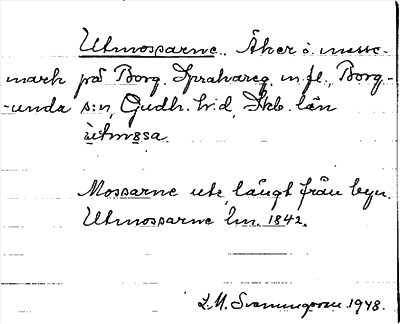 Utmossarne. Åker o. mosse-
mark på Borg. m. fl., Borg-
-unda s:n, Gudh. h:d, Skb. län
ùtms̲sa.
Mossarne ute, långt från byn.
Utmossarne lm. 1842.
L. M. Svenungsson 1948.